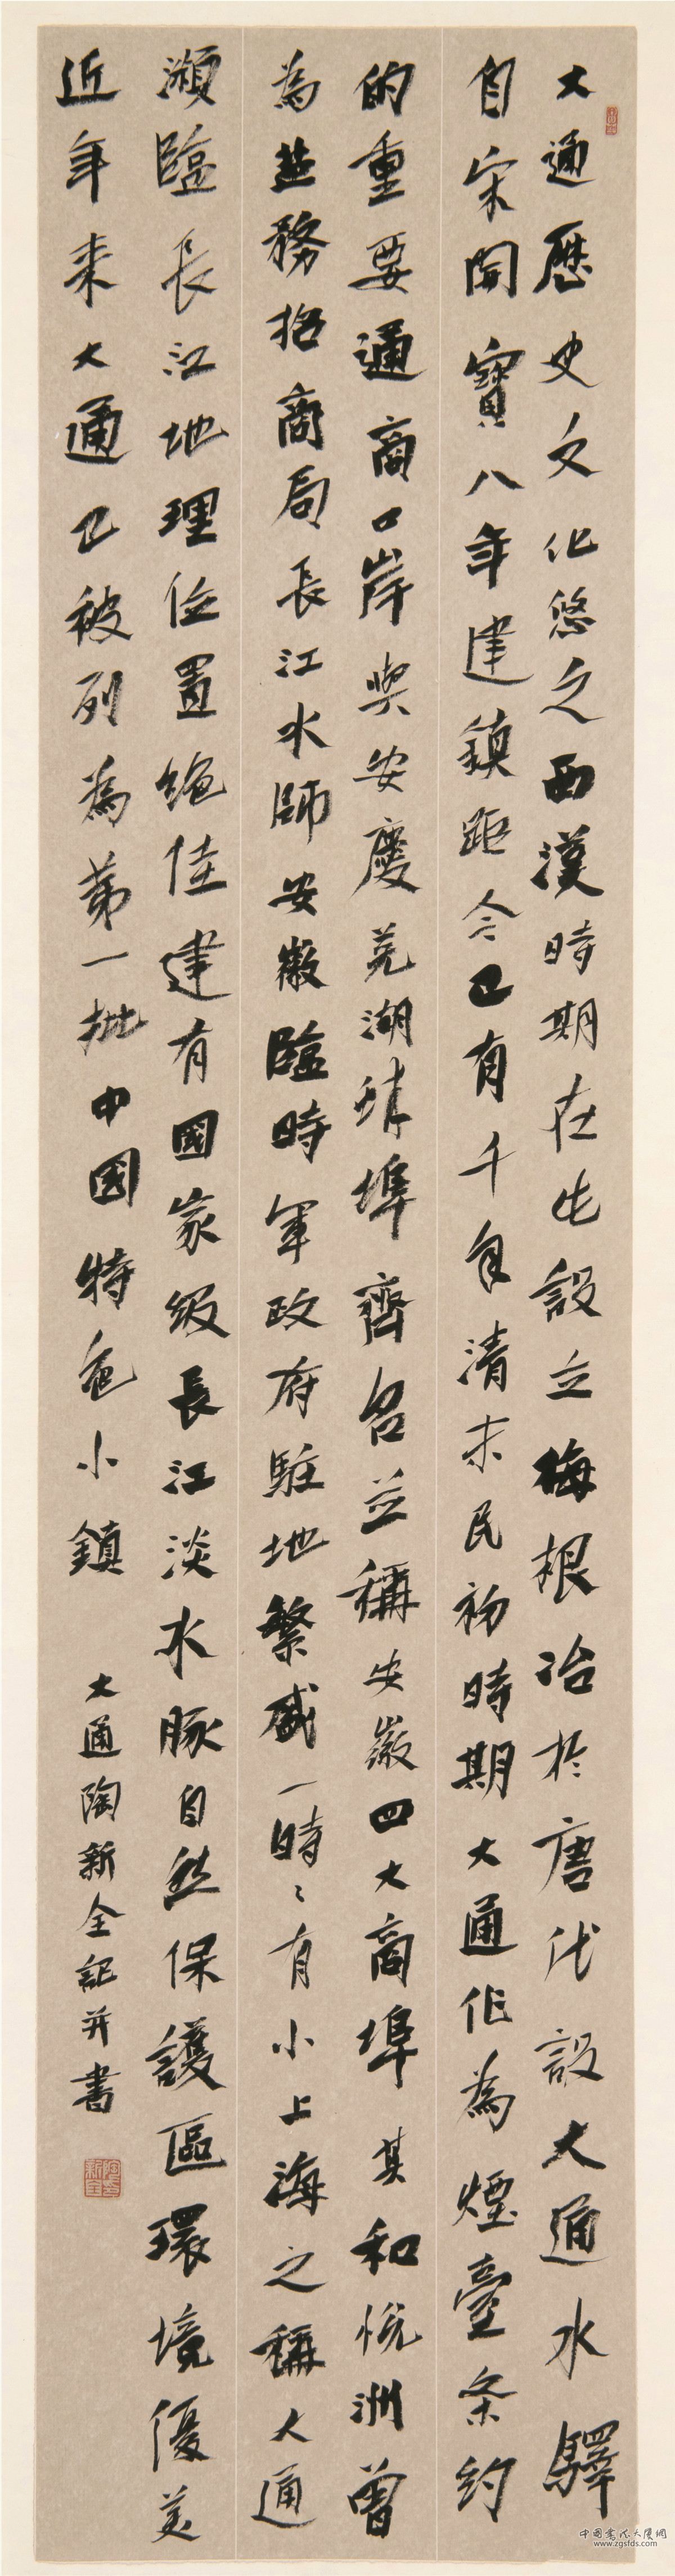 大通歷史文化悠久西漢時期在此設立梅根冶於唐代設大通水驛
自宋開寶八年建鎮距今已有千年清末民初時期大通作為煙臺条約
的重要通商口岸與安慶芜湖蚌埠齊名並稱安徽四大商埠其和悅洲曾
為盐務招商局長江水師安徽臨時軍政府駐地繁盛一時〻有小上海之稱大通
瀕臨長江地理位置絶佳建有國家級長江淡水豚自然保護區環境優美
近年来大通已被列為第一批中國特色小鎮
大通陶新全記并書
中国書法大厦網
www.zgsfds.com